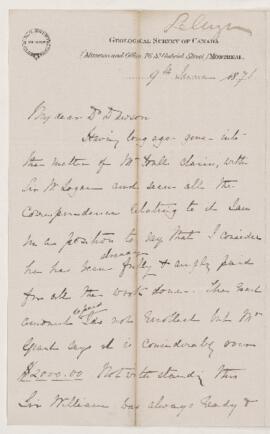 Selwyn
GEOLOGICAL SURVEY OF CANADA
(Museum and Office, 76 St Gabriel Street,) MONTREAL,
9th 187
My dear Dr Dawson
Having long ago gone into
the matter of Mr Hall claim, with
Sir W. Logan and seen all the
Correspondence relating to it I am
in a position to say that I consider
already
he has been fully & amply paid
for all the work done. The exact
amount I do not recollect but Mr
Grant says it is considerably over
$2000.00 Notwithstanding this
Sir William was always ready &